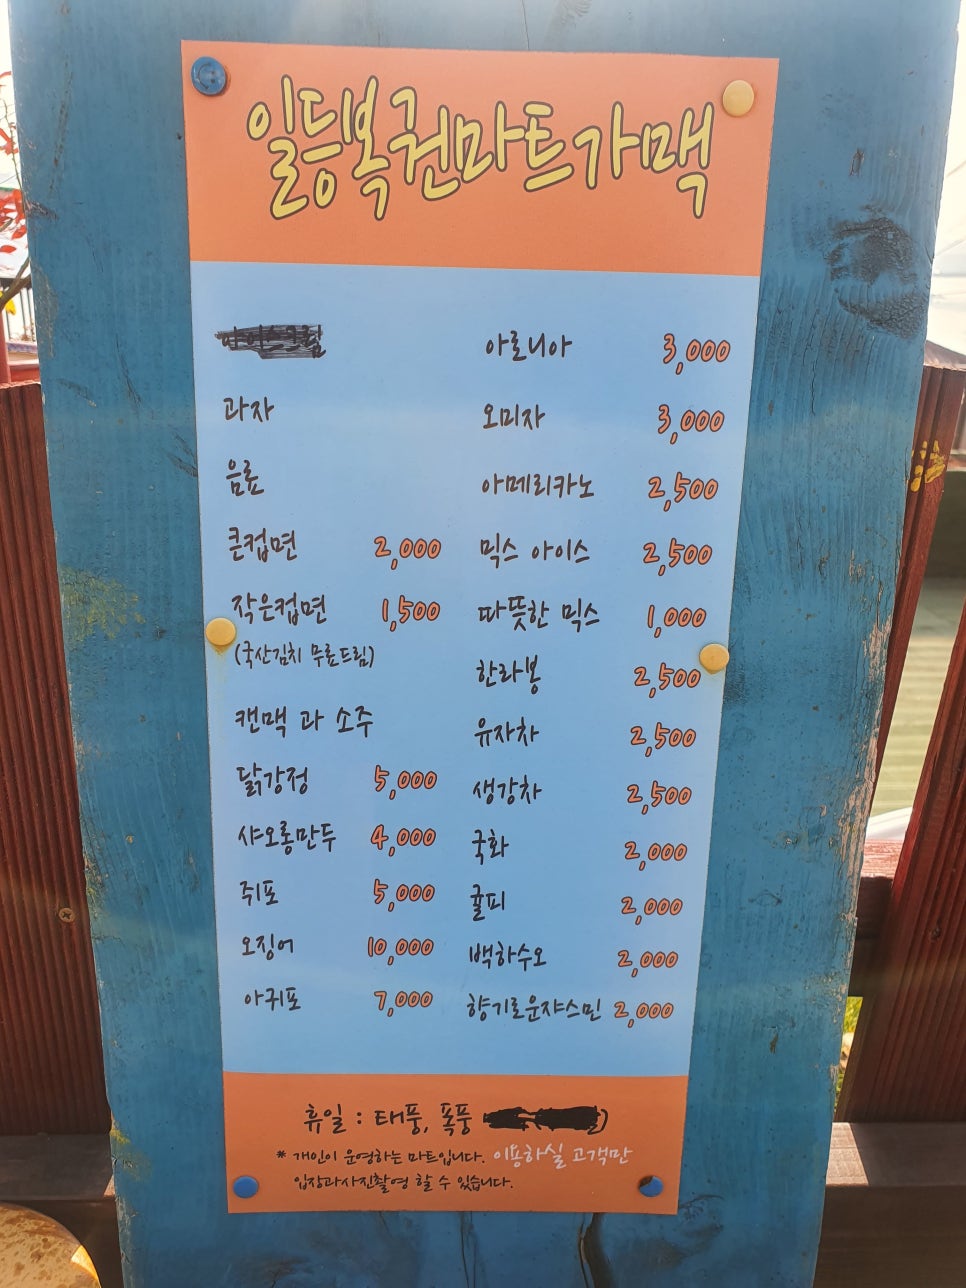 일등복권마트가맥
과자
음료
큰컵면 2,000
작은컵면 1,500
(국산김치 무료드림)
캔맥 과 소주
닭강정 5,000
샤오롱만두 4,000
쥐포 5,000
오징어 10,000
아귀포 7,000
아로니아 3,000
오미자 3,000
아메리카노 2,500
믹스 아이스 2,500
따뜻한 믹스 1,000
한라봉 2,500
유자차 2,500
생강차 2,500
국화 2,000
귤피 2,000
백하수오 2,000
향기로운쟈스민 2,000
휴일 : 태풍, 폭풍
* 개인이 운영하는 마트입니다. 이용하실 고객만
입장과사진촬영 할 수 있습니다.